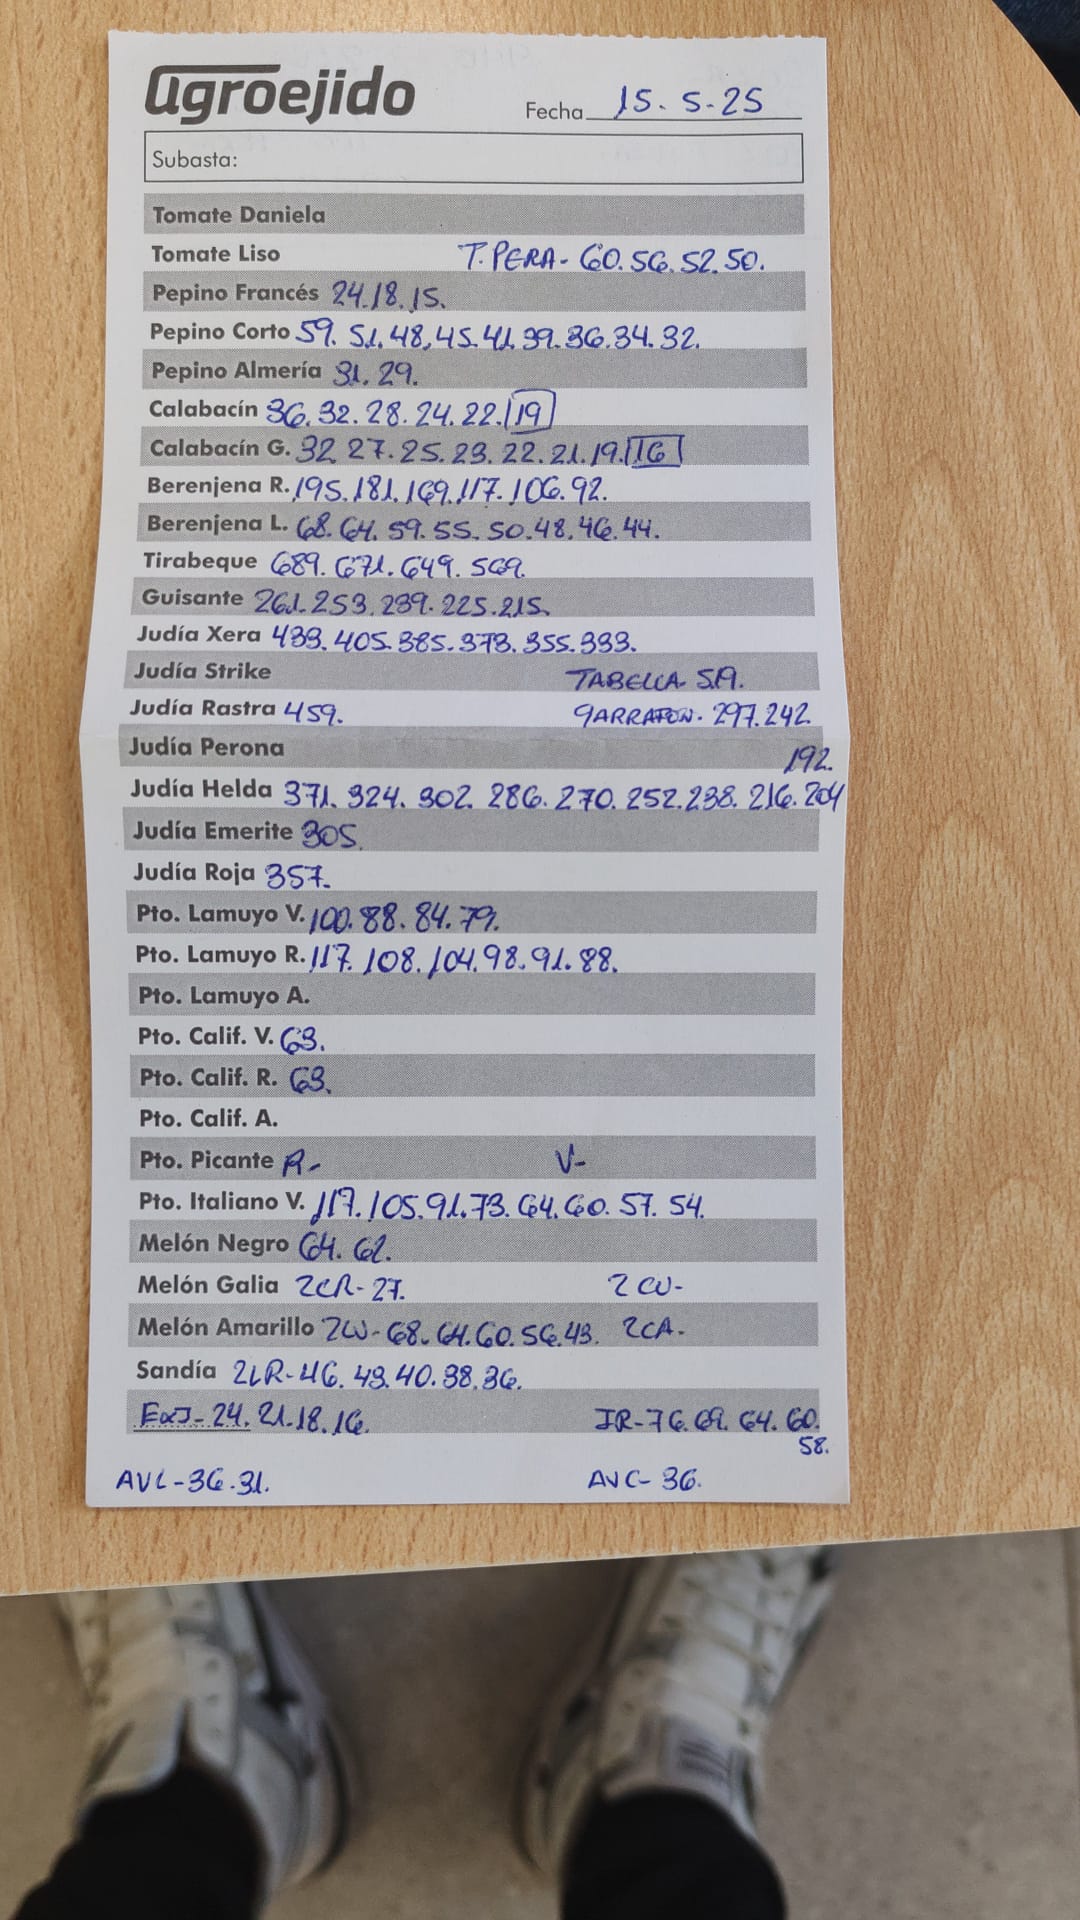 agroejido
Fecha 15. 5-25
Subasta:
Tomate Daniela
Tomate Liso T. PERA- 60. 56. 52. 50.
Pepino Francés 24. 18. 15.
Pepino Corto 59. 51. 48. 45. 41. 39. 36. 34. 32.
Pepino Almería 31. 29.
Calabacín 36. 32. 28. 24. 22. 19
Calabacín G. 32 27. 25. 23. 22. 21. 19. 16
Berenjena R. 195. 181. 169. 117. 106. 92.
Berenjena L. 68. 64. 59. 55. 50. 48. 46. 44.
Tirabeque 689. 671. 649. 569.
Guisante 261. 253. 239. 225. 215.
Judía Xera 433. 405. 385. 373. 355. 333.
Judía Strike TABELLA-
Judía Rastra 459. GARRAFON- 297. 242.
Judía Perona 192.
Judía Helda 371. 324. 302. 286. 270. 252. 238. 216. 204
Judía Emerite 305.
Judía Roja 357.
Pto. Lamuyo V. 100. 88. 84. 79.
Pto. Lamuyo R. 117. 108. 104. 98. 91. 88.
Pto. Lamuyo A.
Pto. Calif. V. 63.
Pto. Calif. R. 63.
Pto. Calif. A.
Pto. Picante R- V-
Pto. Italiano V. 117. 105. 91. 73. 64. 60. 57. 54.
Melón Negro 64. 62.
Melón Galia 2CR- 27. 2 CU-
Melón Amarillo 68. 64. 60. 56. 43. 2CA-
Sandía 46. 43. 40. 38. 36.
24. 21. 18. 16. JR- 76. 69. 64. 60.
58.
AVL- 36. 31. AVC- 36.